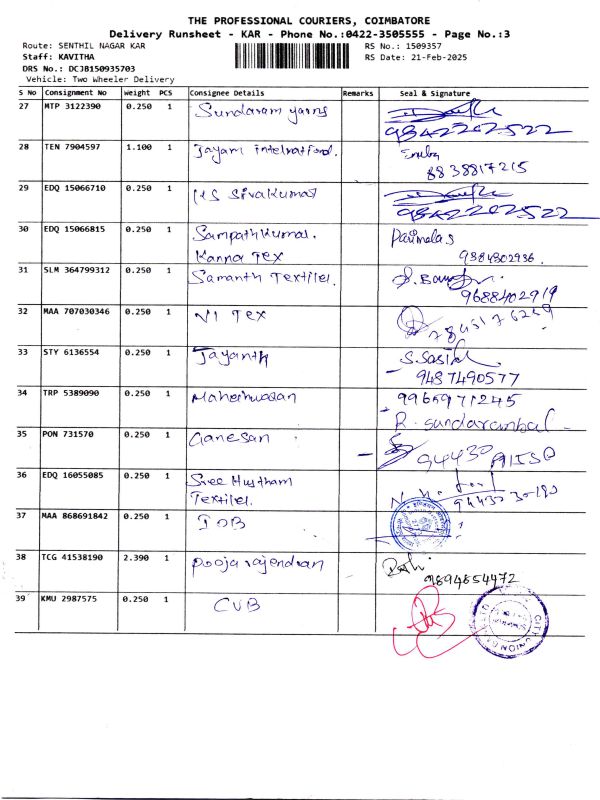 THE PROFESSIONAL COURIERS, COIMBATORE
Delivery Runsheet - KAR - Phone No.:0422-3505555 - Page No.:3
Route: SENTHIL NAGAR KAR RS No.: 1509357
Staff: KAVITHA RS Date: 21-Feb-2025
DRS No.: DCJB150935703
Vehicle: Two Wheeler Delivery
S No Consignment No Weight PCS Consignee Details Remarks Seal & Signature
27 MTP 3122390 0.250 1 Sundaram yarns
9842202522
28 TEN 7904597 1.100 1 Jayam
8838817215
29 EDQ 15066710 0.250 1 Sivakumar
9842202522
30 EDQ 15066815 0.250 1 Sampathkumar. Parimala.S
Kanna Tex 9384802936.
31 SLM 364799312 0.250 1
9688402919
32 MAA 707030346 0.250 1 VI Tex
33 STY 6136554 0.250 1 Jayanth S.Sasi
9487490577
34 TRP 5389090 0.250 1 9965971245
R. Sundarambal
35 PON 731570 0.250 1 Ganesan
36 EDQ 16055085 0.250 1 Sree
Textiles.
37 MAA 868691842 0.250 1 IOB
38 TCG 41538190 2.390 1 Pooja rajendran
9894854472
39 KMU 2987575 0.250 1 CUB
CITY UNION